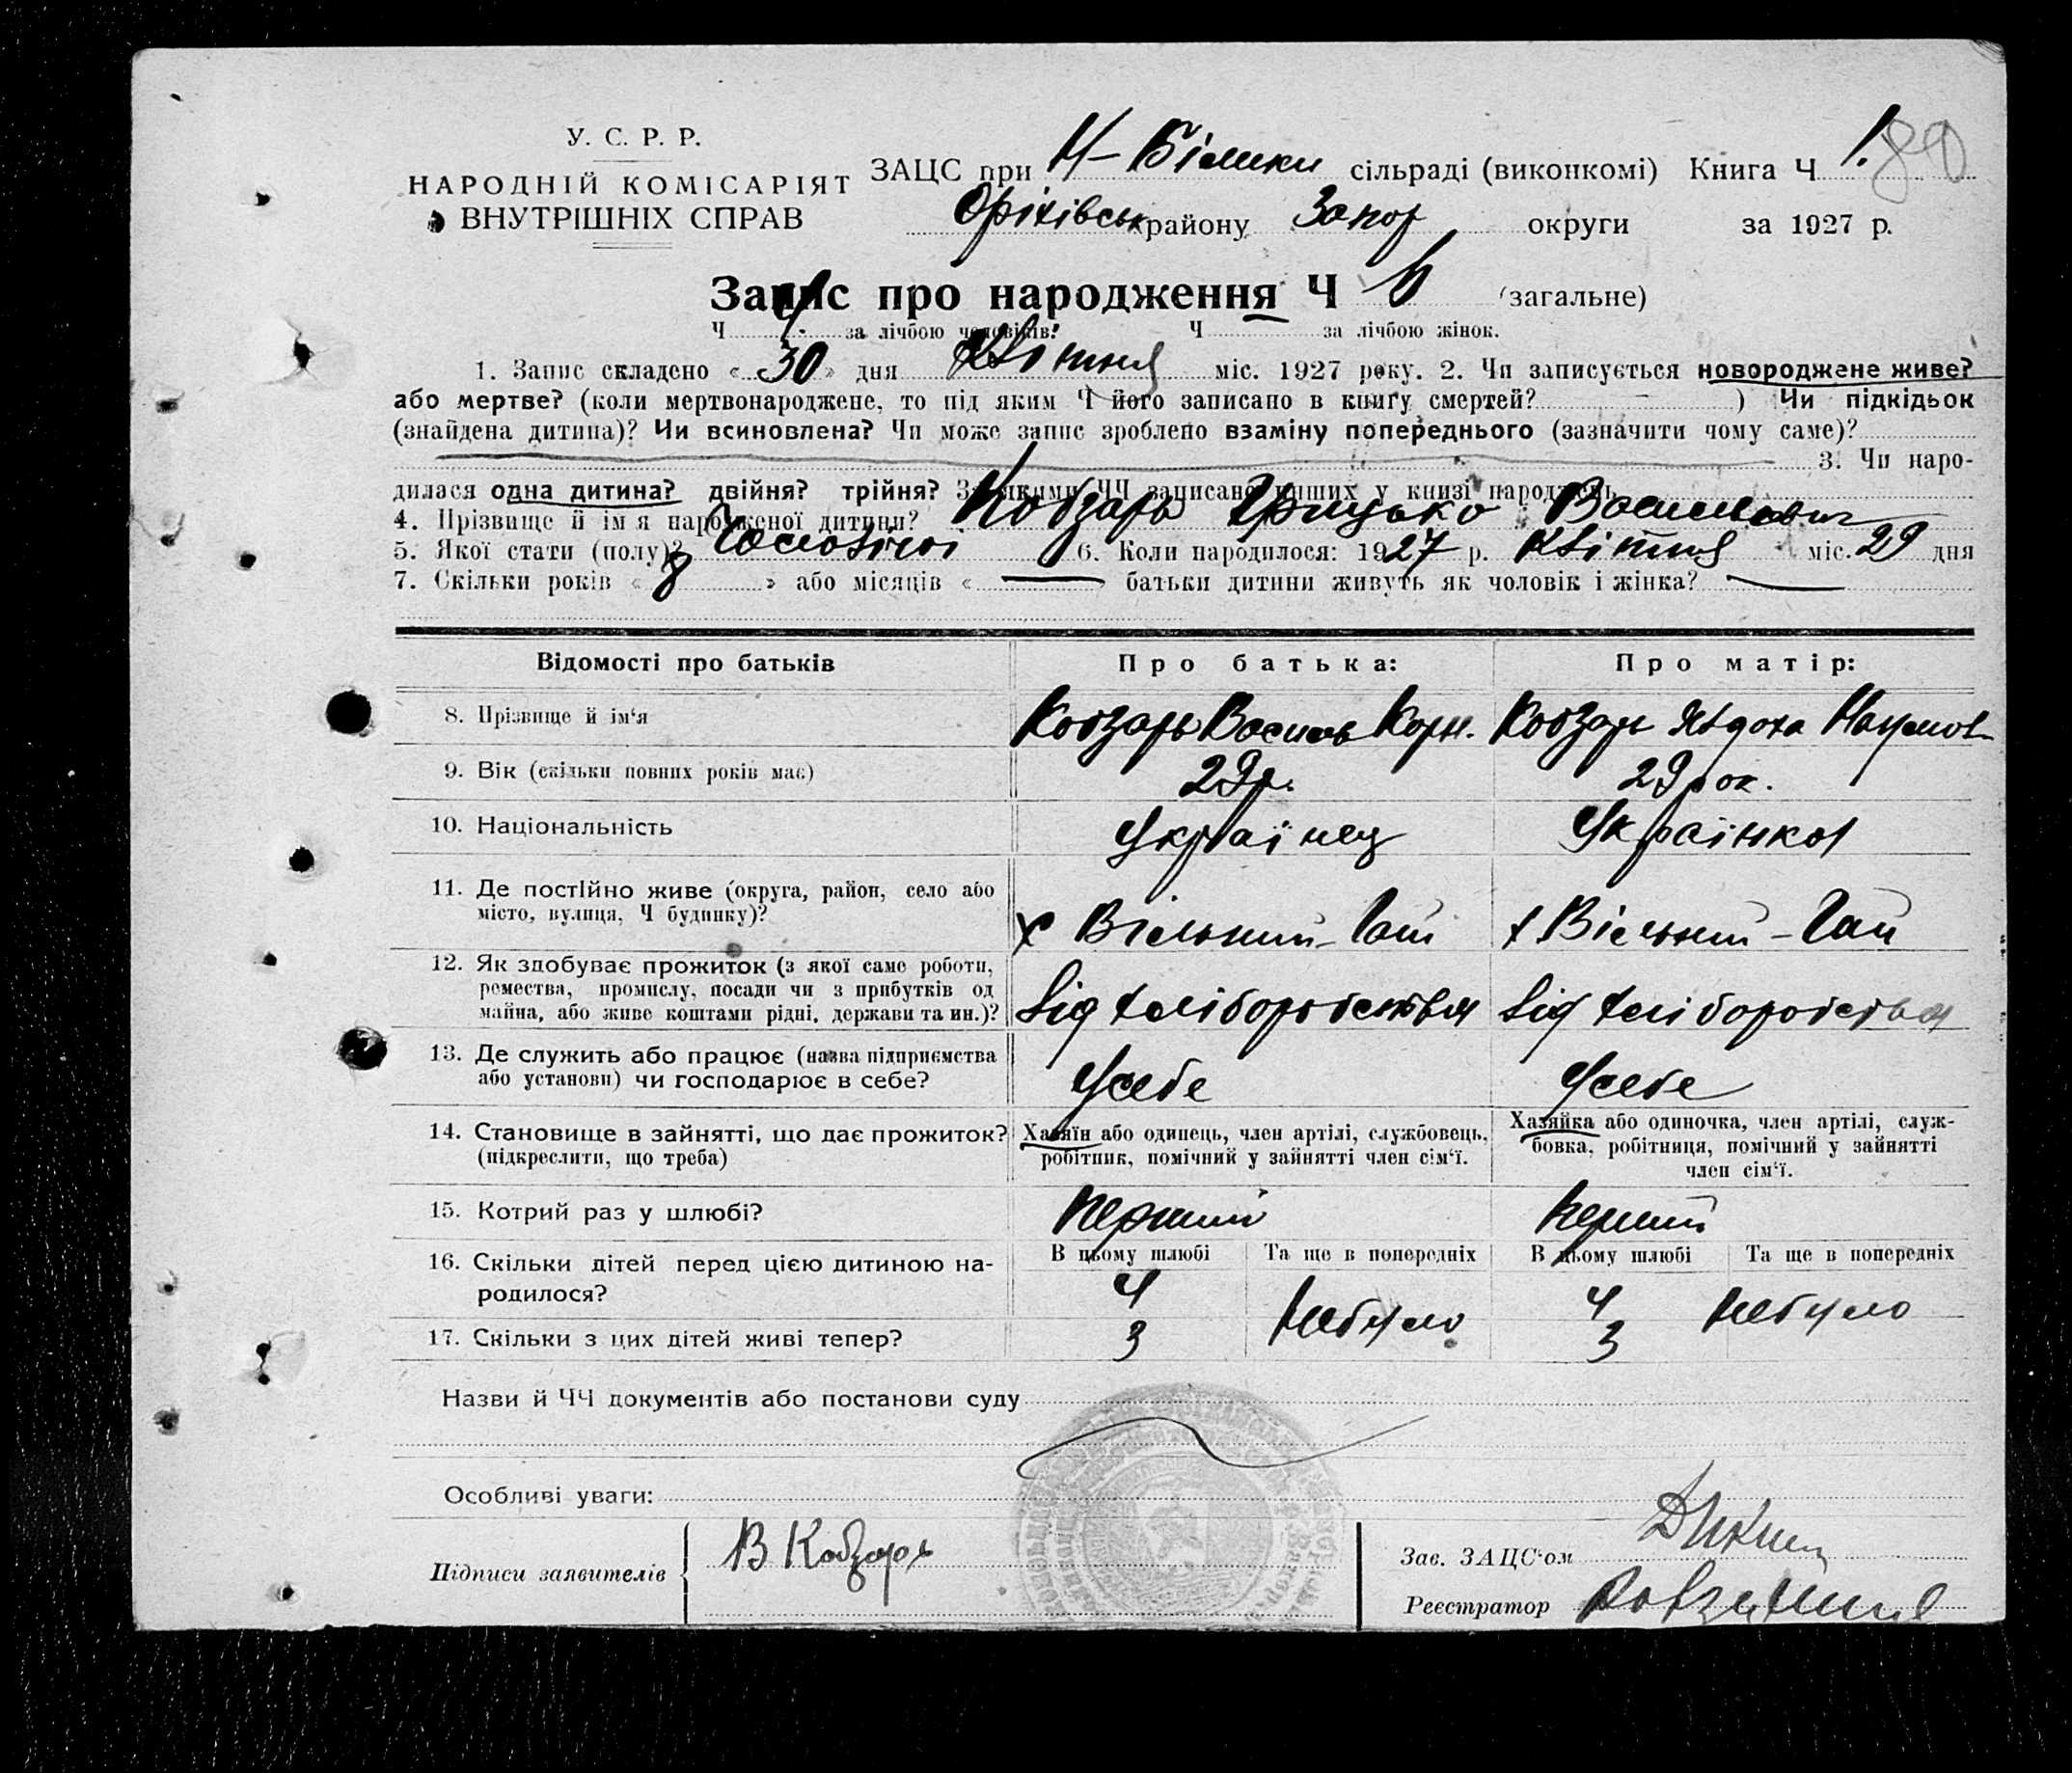 У. С. Р. Р.
НАРОДНІЙ КОМІСАРІЯТ
ВНУТРІШНІХ СПРАВ
ЗАЦС при Н-Білики сільраді (виконкомі) Книга Ч 1. 80
Оріхівськ району Запор округи за 1927 р.
Запис про народження Ч 6 (загальне)
Ч 4 за лічбою чоловіків. Ч за лічбою жінок.
1. Запис складено « 30 » дня Квітня міс. 1927 року. 2. Чи записується новороджене живе?
або мертве? (коли мертвонароджене, то під яким Ч його записано в книгу смертей? — ) Чи підкідьок
(знайдена дитина)? Чи всиновлена? Чи може запис зроблено взаміну попереднього (зазначити чому саме)?
3. Чи наро-
дилася одна дитина? двійня? трійня? За якими ЧЧ записано инших у книзі народжень
4. Прізвище й ім'я народженої дитини? Кобзарь Грицько Васильович
5. Якої стати (полу)? Чоловічої 6. Коли народилося: 1927 р. Квітня міс. 29 дня
7. Скільки років « 8 » або місяців « — » батьки дитини живуть як чоловік і жінка? —
Відомості про батьків Про батька: Про матір:
8. Прізвище й ім'я Кобзарь Василь Корн. Кобзарь Явдоха Наумов
9. Вік (скільки повних років має) 29 р. 29 рок.
10. Національність Українец Українка
11. Де постійно живе (округа, район, село або
місто, вулиця, Ч будинку)? х Вільний-Гай х Вільний-Гай
12. Як здобуває прожиток (з якої саме роботи,
ремества, промислу, посади чи з прибутків од
майна, або живе коштами рідні, держави та ин.)? від хліборобства від хліборобства
13. Де служить або працює (назва підприємства
або установи) чи господарює в себе? Усебе Усебе
14. Становище в зайнятті, що дає прожиток?
(підкреслити, що треба)
Хазяїн або одинець, член артілі, службовець,
робітник, помічний у зайнятті член сім'ї.
Хазяйка або одиночка, член артілі, служ-
бовка, робітниця, помічний у зайнятті
член сім'ї.
15. Котрий раз у шлюбі? перший перший
В цьому шлюбі Та ще в попередніх В цьому шлюбі Та ще в попередніх
16. Скільки дітей перед цією дитиною на-
родилося? 4 небуло 4 небуло
17. Скільки з цих дітей живі тепер? 3 3
Назви й ЧЧ документів або постанови суду
Особливі уваги:
Підписи заявителів В Кобзарь
Зав. ЗАЦС'ом
Реєстратор